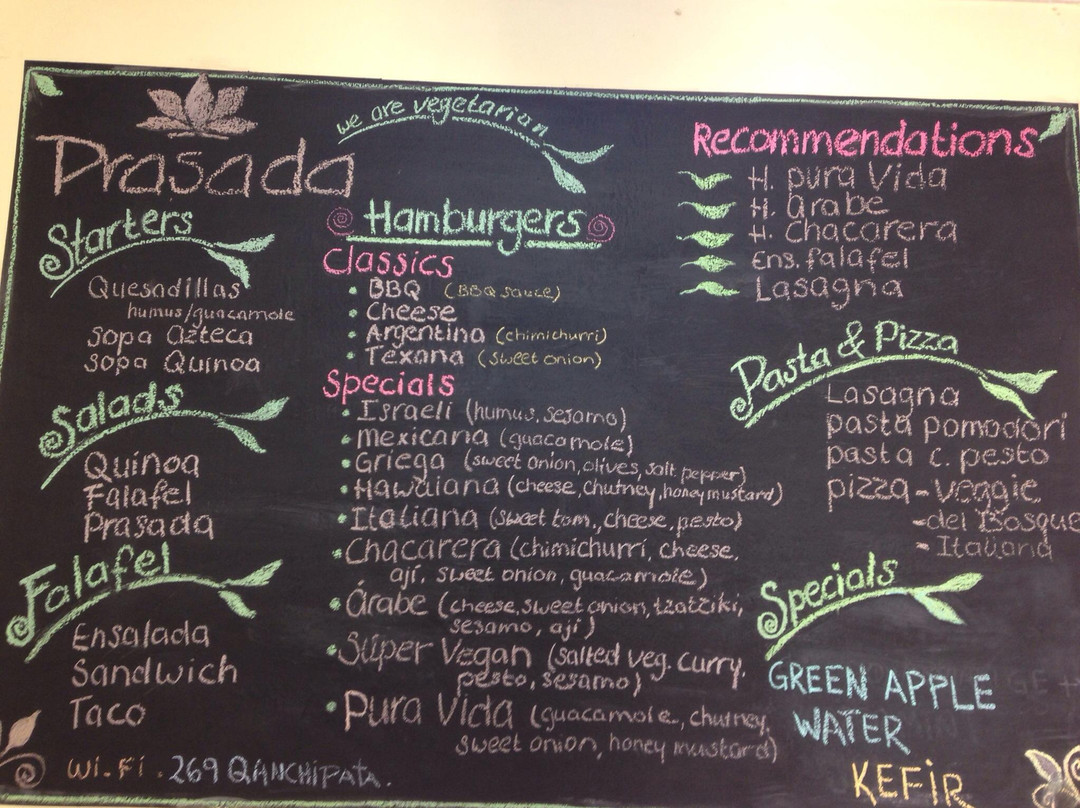 Prasada
we are vegetarian
Starters
Quesadillas
humus/guacamole
Sopa Azteca
Sopa Quinoa
Salads
Quinoa
Falafel
Prasada
Falafel
Ensalada
Sandwich
Taco
Wi.Fi. 269 QANCHIPATA.
Hamburgers
Classics
• BBQ (BBQ sauce)
• Cheese
• Argentina (chimichurri)
• Texana (sweet onion)
Specials
• Israeli (humus, sesamo)
• Mexicana (guacamole)
• Griega (sweet onion, olives, salt pepper)
• Hawaiana (cheese, chutney, honey mustard)
• Italiana (sweet tom., cheese, pesto)
• Chacarera (chimichurri, cheese,
ají, sweet onion, guacamole)
• Árabe (cheese, sweet onion, tzatziki,
sesamo, ají)
• Súper Vegan (salted veg. curry,
pesto, sesamo)
• Pura Vida (guacamole, chutney,
sweet onion, honey mustard)
Recommendations
H. pura Vida
H. árabe
H. Chacarera
Ens. falafel
Lasagna
Pasta & Pizza
Lasagna
pasta pomodori
pasta c. pesto
pizza - veggie
- del Bosque
- Italiana
Specials
GREEN APPLE
WATER
KEFiR